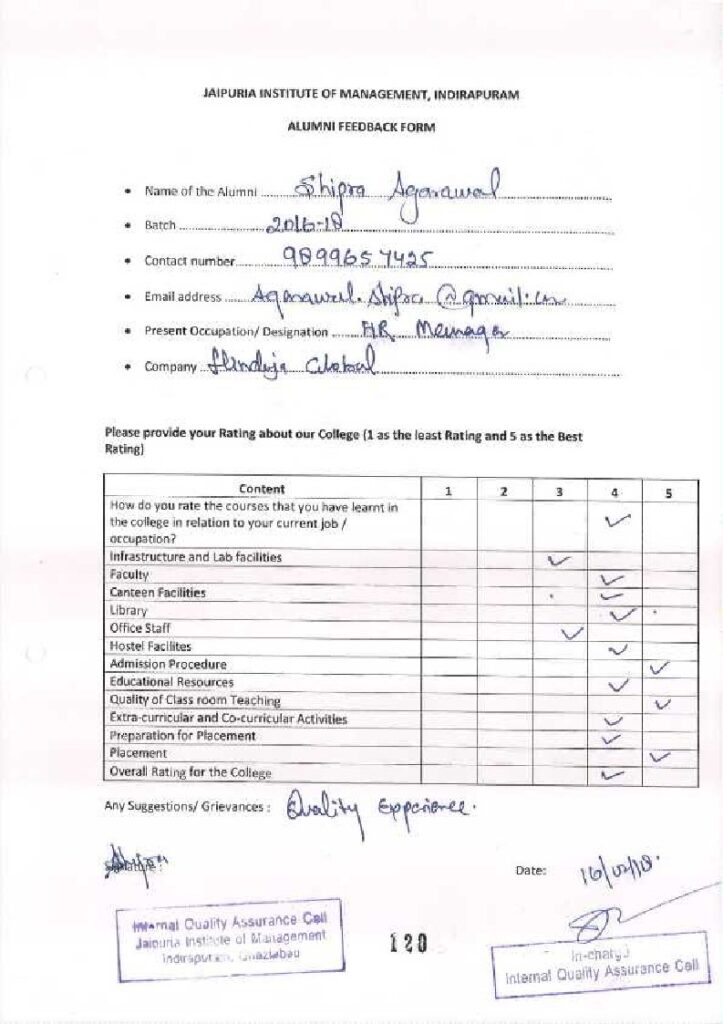 JAIPURIA INSTITUTE OF MANAGEMENT, INDIRAPURAM
ALUMNI FEEDBACK FORM
• Name of the Alumni Shipra Agarawal
• Batch 2016-18
• Contact number 9899657425
• Email address Agarawal.Shipra@gmail.com
• Present Occupation/ Designation HR
• Company Hinduja Global
Please provide your Rating about our College (1 as the least Rating and 5 as the Best
Rating)
Content 1 2 3 4 5
How do you rate the courses that you have learnt in
the college in relation to your current job / ✓
occupation?
Infrastructure and Lab facilities ✓
Faculty ✓
Canteen Facilities ✓
Library ✓
Office Staff ✓
Hostel Facilites ✓
Admission Procedure ✓
Educational Resources ✓
Quality of Class room Teaching ✓
Extra-curricular and Co-curricular Activities ✓
Preparation for Placement ✓
Placement ✓
Overall Rating for the College ✓
Any Suggestions/ Grievances : Quality
Date: 16/02/18.
Internal Quality Assurance Cell
Jaipuria Institute of Management
Indirapuram, Ghaziabad
120
In-charge
Internal Quality Assurance Cell